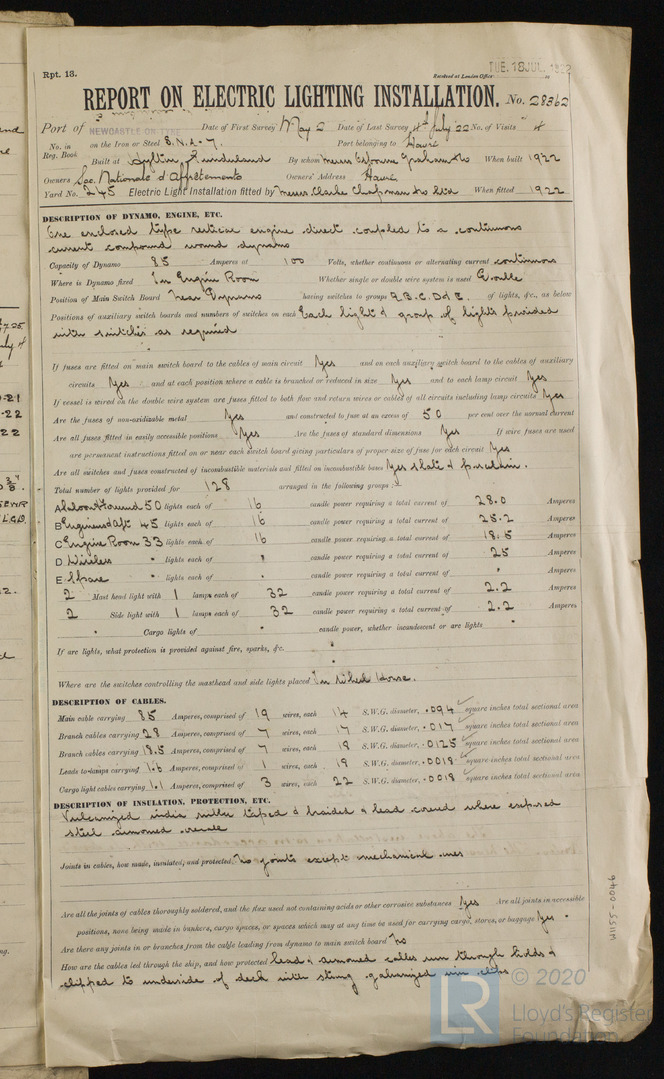 Rpt. 13.
TUE. 18 JUL. 1922
Received at London Office
REPORT ON ELECTRIC LIGHTING INSTALLATION. No. 28362
Port of NEWCASTLE-ON-TYNE Date of First Survey May 2 Date of Last Survey 4th July '22 No. of Visits 4
No. in Reg. Book on the Iron or Steel S.N.A-7. Port belonging to Havre
Built at Hylton Sunderland By whom Messrs Osbourne Graham & Co When built 1922
Owners Soc. Nationale d'Affretements Owners' Address Havre
Yard No. 245 Electric Light Installation fitted by Messrs Clarke Chapman & Co Ltd When fitted 1922
DESCRIPTION OF DYNAMO, ENGINE, ETC.
One enclosed type vertical engine direct coupled to a continuous
current compound wound dynamo
Capacity of Dynamo 85 Amperes at 100 Volts, whether continuous or alternating current continuous
Where is Dynamo fixed In Engine Room Whether single or double wire system is used Double
Position of Main Switch Board Near Dynamo having switches to groups A.B.C.D & E. of lights, &c., as below
Positions of auxiliary switch boards and numbers of switches on each Each light & group of lights provided
with switches as required
If fuses are fitted on main switch board to the cables of main circuit Yes and on each auxiliary switch board to the cables of auxiliary
circuits Yes and at each position where a cable is branched or reduced in size Yes and to each lamp circuit Yes
If vessel is wired on the double wire system are fuses fitted to both flow and return wires or cables of all circuits including lamp circuits Yes
Are the fuses of non-oxidizable metal Yes and constructed to fuse at an excess of 50 per cent over the normal current
Are all fuses fitted in easily accessible positions Yes Are the fuses of standard dimensions Yes If wire fuses are used
are permanent instructions fitted on or near each switch board giving particulars of proper size of fuse for each circuit Yes
Are all switches and fuses constructed of incombustible materials and fitted on incombustible bases Yes slate & porcelain.
Total number of lights provided for 128 arranged in the following groups :-
A Saloon & Forward 50 lights each of 16 candle power requiring a total current of 28.0 Amperes
B Engineers & Aft 45 lights each of 16 candle power requiring a total current of 25.2 Amperes
C Engine Room 33 lights each of 16 candle power requiring a total current of 18.5 Amperes
D Wireless " lights each of " candle power requiring a total current of 25 Amperes
E Spare " lights each of " candle power requiring a total current of " Amperes
2 Mast head light with 1 lamps each of 32 candle power requiring a total current of 2.2 Amperes
2 Side light with 1 lamps each of 32 candle power requiring a total current of 2.2 Amperes
" Cargo lights of " candle power, whether incandescent or arc lights "
If arc lights, what protection is provided against fire, sparks, &c. "
Where are the switches controlling the masthead and side lights placed In Wheel House.
DESCRIPTION OF CABLES.
Main cable carrying 85 Amperes, comprised of 19 wires, each 14 S.W.G. diameter, .094 square inches total sectional area
Branch cables carrying 28 Amperes, comprised of 7 wires, each 17 S.W.G. diameter, .017 square inches total sectional area
Branch cables carrying 18.5 Amperes, comprised of 7 wires, each 18 S.W.G. diameter, .0125 square inches total sectional area
Leads to lamps carrying 1.6 Amperes, comprised of 1 wires, each 18 S.W.G. diameter, .0018 square inches total sectional area
Cargo light cables carrying 1.1 Amperes, comprised of 3 wires, each 22 S.W.G. diameter, .0018 square inches total sectional area
DESCRIPTION OF INSULATION, PROTECTION, ETC.
Vulcanized india rubber taped & braided & lead covered where exposed
steel armoured
Joints in cables, how made, insulated, and protected No joints except mechanical ones
Are all the joints of cables thoroughly soldered, and the flux used not containing acids or other corrosive substances Yes Are all joints in accessible
positions, none being made in bunkers, cargo spaces, or spaces which may at any time be used for carrying cargo, stores, or baggage Yes
Are there any joints in or branches from the cable leading from dynamo to main switch board No
How are the cables led through the ship, and how protected Lead & armoured cables run through holds &
clipped to underside of deck with strong galvanized iron clips
W1155-0046
© 2020
LR
Lloyd's Register
Foundation